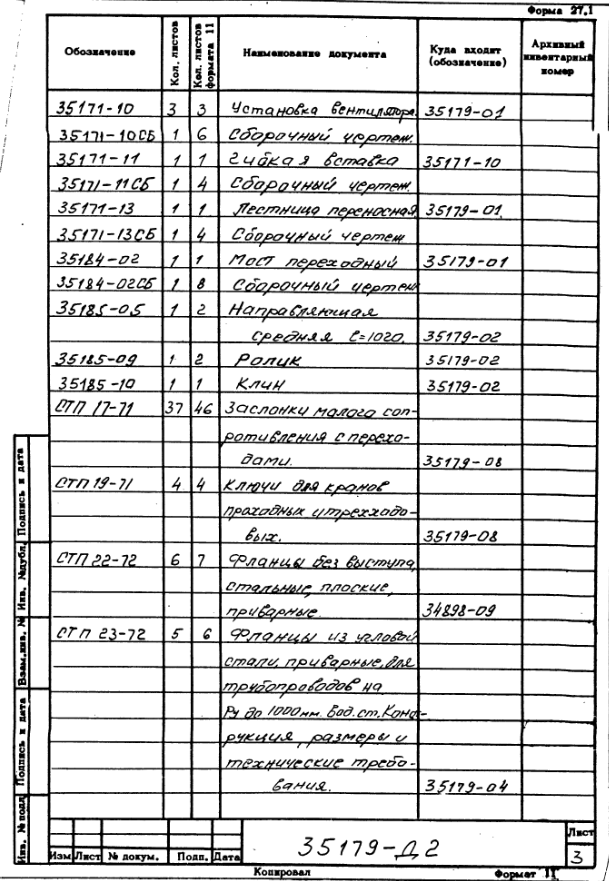 Форма 27.1
Обозначение Кол. листов Кол. листов формата 11 Наименование документа Куда входит (обозначение) Архивный инвентарный номер
35171-10 3 3 Установка вентилятора 35179-01
35171-10СБ 1 6 Сборочный чертеж.
35171-11 1 1 Гибкая вставка 35171-10
35171-11СБ 1 4 Сборочный чертеж.
35171-13 1 1 Лестница переносная 35179-01
35171-13СБ 1 4 Сборочный чертеж
35184-02 1 1 Мост переходный 35179-01
35184-02СБ 1 8 Сборочный чертеж
35185-05 1 2 Направляющая
средняя ℓ=1020. 35179-02
35185-09 1 2 Ролик 35179-02
35185-10 1 1 Клин 35179-02
СТП 17-71 37 46 Заслонки малого соп-
ротивления с перехо-
дами. 35179-08
СТП 19-71 4 4 Ключи для кранов
проходных и трехходо-
вых. 35179-08
СТП 22-72 6 7 Фланцы без выступа,
стальные, плоские,
приварные. 34898-09
СТП 23-72 5 6 Фланцы из угловой
стали, приварные, для
трубопроводов на
Ру до 1000 мм. вод. ст. Конст-
рукция, размеры и
технические требо-
вания. 35179-04
Инв. № подл. Подпись и дата Взам. инв. № Инв. № дубл. Подпись и дата
35179-Д2
Лист
3
Изм Лист № докум. Подп. Дата
Копировал Формат 11